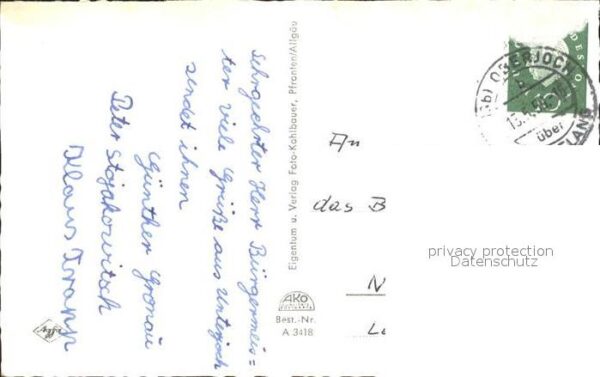 Sehrgeehrter Herr Bürgermeis=
ter viele Grüße aus Unterjoch
sendet ihnen
Günther Gronau
Peter Stojakowitsch
Klaus Trapp
Eigentum u. Verlag Foto-Kohlbauer, Pfronten/Allgäu
AKO
Best.-Nr.
A 3418
OBERJOCH
über
An
das B
N
privacy protection
Datenschutz